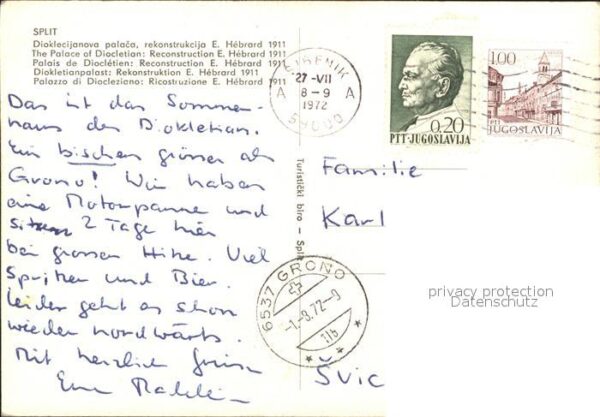 SPLIT
Dioklecijanova palača, rekonstrukcija E. Hébrard 1911
The Palace of Diocletian: Reconstruction E. Hébrard 1911
Palais de Dioclétien: Reconstruction E. Hébrard 1911
Diokletianpalast: Rekonstruktion E. Hébrard 1911
Palazzo di Diocleziano: Ricostruzione E. Hébrard 1911
Das ist das Sommer-
haus des Diokletian.
Ein bischen grösser als
Grono! Wir haben
eine Motorpanne und
sitzen 2 Tage hier
bei grosser Hitze. Viel
Spritzer und Bier.
Leider geht es schon
wieder nordwärts.
Mit herzlich Grüssen
Turistički biro - Split
27-VII
A 8-9 A
1972
0.20
PTT-JUGOSLAVIJA
1.00
PTT
JUGOSLAVIJA
Familie
Karl
6537 GRONO
-1.-8.72-9
ŠVIC
privacy protection
Datenschutz